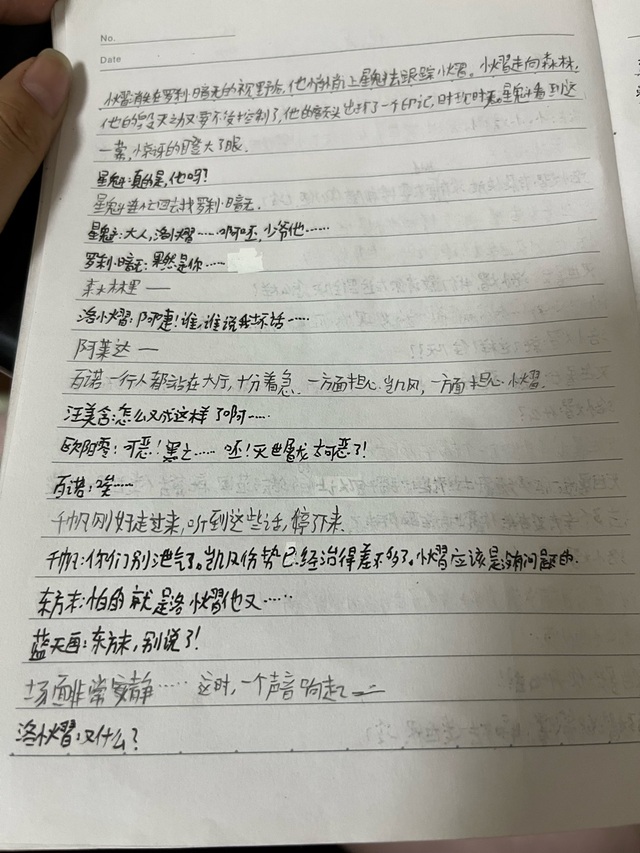 No.
Date
小熠消失在罗刹·暗无的视野后，他悄悄让星魁去跟踪小熠。小熠走向森林，
他的毁灭之力又要不没控制了，他的额头也打了一个印记，时现时无。星魁看到这
一幕，惊讶的瞪大了眼。
星魁：真的是，他吗？
星魁连忙回去找罗刹·暗无。
星魁：大人，洛小熠……啊呸，少爷他……
罗刹·暗无：果然是你……
森林里——
洛小熠：阿嚏！谁，谁说我坏话……
阿莱达—
百诺一行人都站在大厅，十分着急。一方面担心凯风，一方面担心小熠。
汪美含：怎么又成这样了啊……
欧阳零：可恶！黑之……呸！灭世屠龙太可恶了！
百诺：唉……
千帆刚好走过来，听到这些话，停下来
千帆：你们别泄气了。凯风伤势已经治得差不多了。小熠应该是没有问题的。
东方末：怕的就是洛小熠他又……
蓝天画：东方末，别说了！
场面非常安静…… 这时，一个声音响起——
洛小熠：又什么？